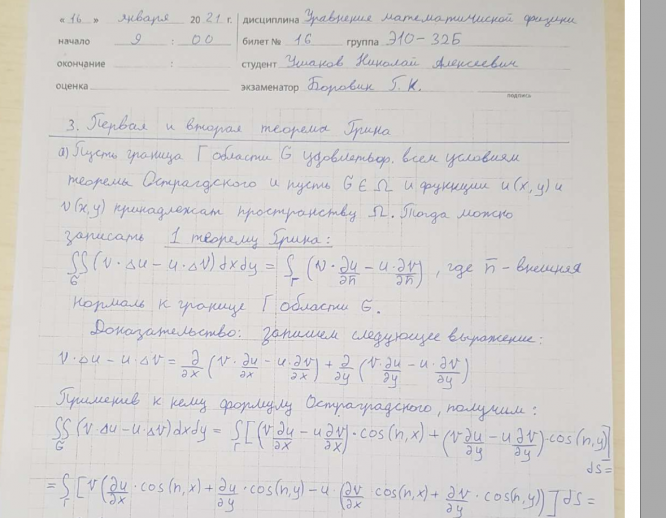 « 16 » января 20 21 г. дисциплина Уравнение математической физики
начало 9 : 00 билет № 16 группа Э10-32Б
окончание : студент Уманов Николай Алексеевич
оценка экзаменатор Боровик Г. К.
подпись
3. Первая и вторая теорема Грина
а) Пусть граница Γ области G удовлетвор. всем условиям
теоремы Остраградского и пусть G ∈ Ω и функции u(x, y) и
v(x,y) принадлежат пространству Ω. Тогда можно
записать 1 теорему Грина:
∬_G (v · Δu − u · Δv) dxdy = ∫_Γ (v · ∂u/∂n̄ − u · ∂v/∂n̄), где n̄ - внешняя
нормаль к границе Γ области G.
Доказательство: запишем следующее выражение:
v · Δu − u · Δv = ∂/∂x (v · ∂u/∂x − u · ∂v/∂x) + ∂/∂y (v · ∂u/∂y − u · ∂v/∂y)
Применив к нему формулу Остраградского, получим:
∬_G (v · Δu − u · Δv) dxdy = ∫_Γ [(v ∂u/∂x − u ∂v/∂x) · cos(n,x) + (v ∂u/∂y − u ∂v/∂y) · cos(n,y)]
ds =
= ∫_Γ [v (∂u/∂x · cos(n,x) + ∂u/∂y · cos(n,y) − u (∂v/∂x cos(n,x) + ∂v/∂y · cos(n,y))] ds =